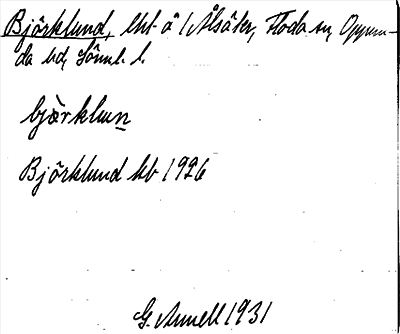 Björklund, lht å 1/Ålsäter, Floda sn, Oppun-
da hd, Sörml. l.
bjærklun
Björklund kb 1926
G. Annell 1931